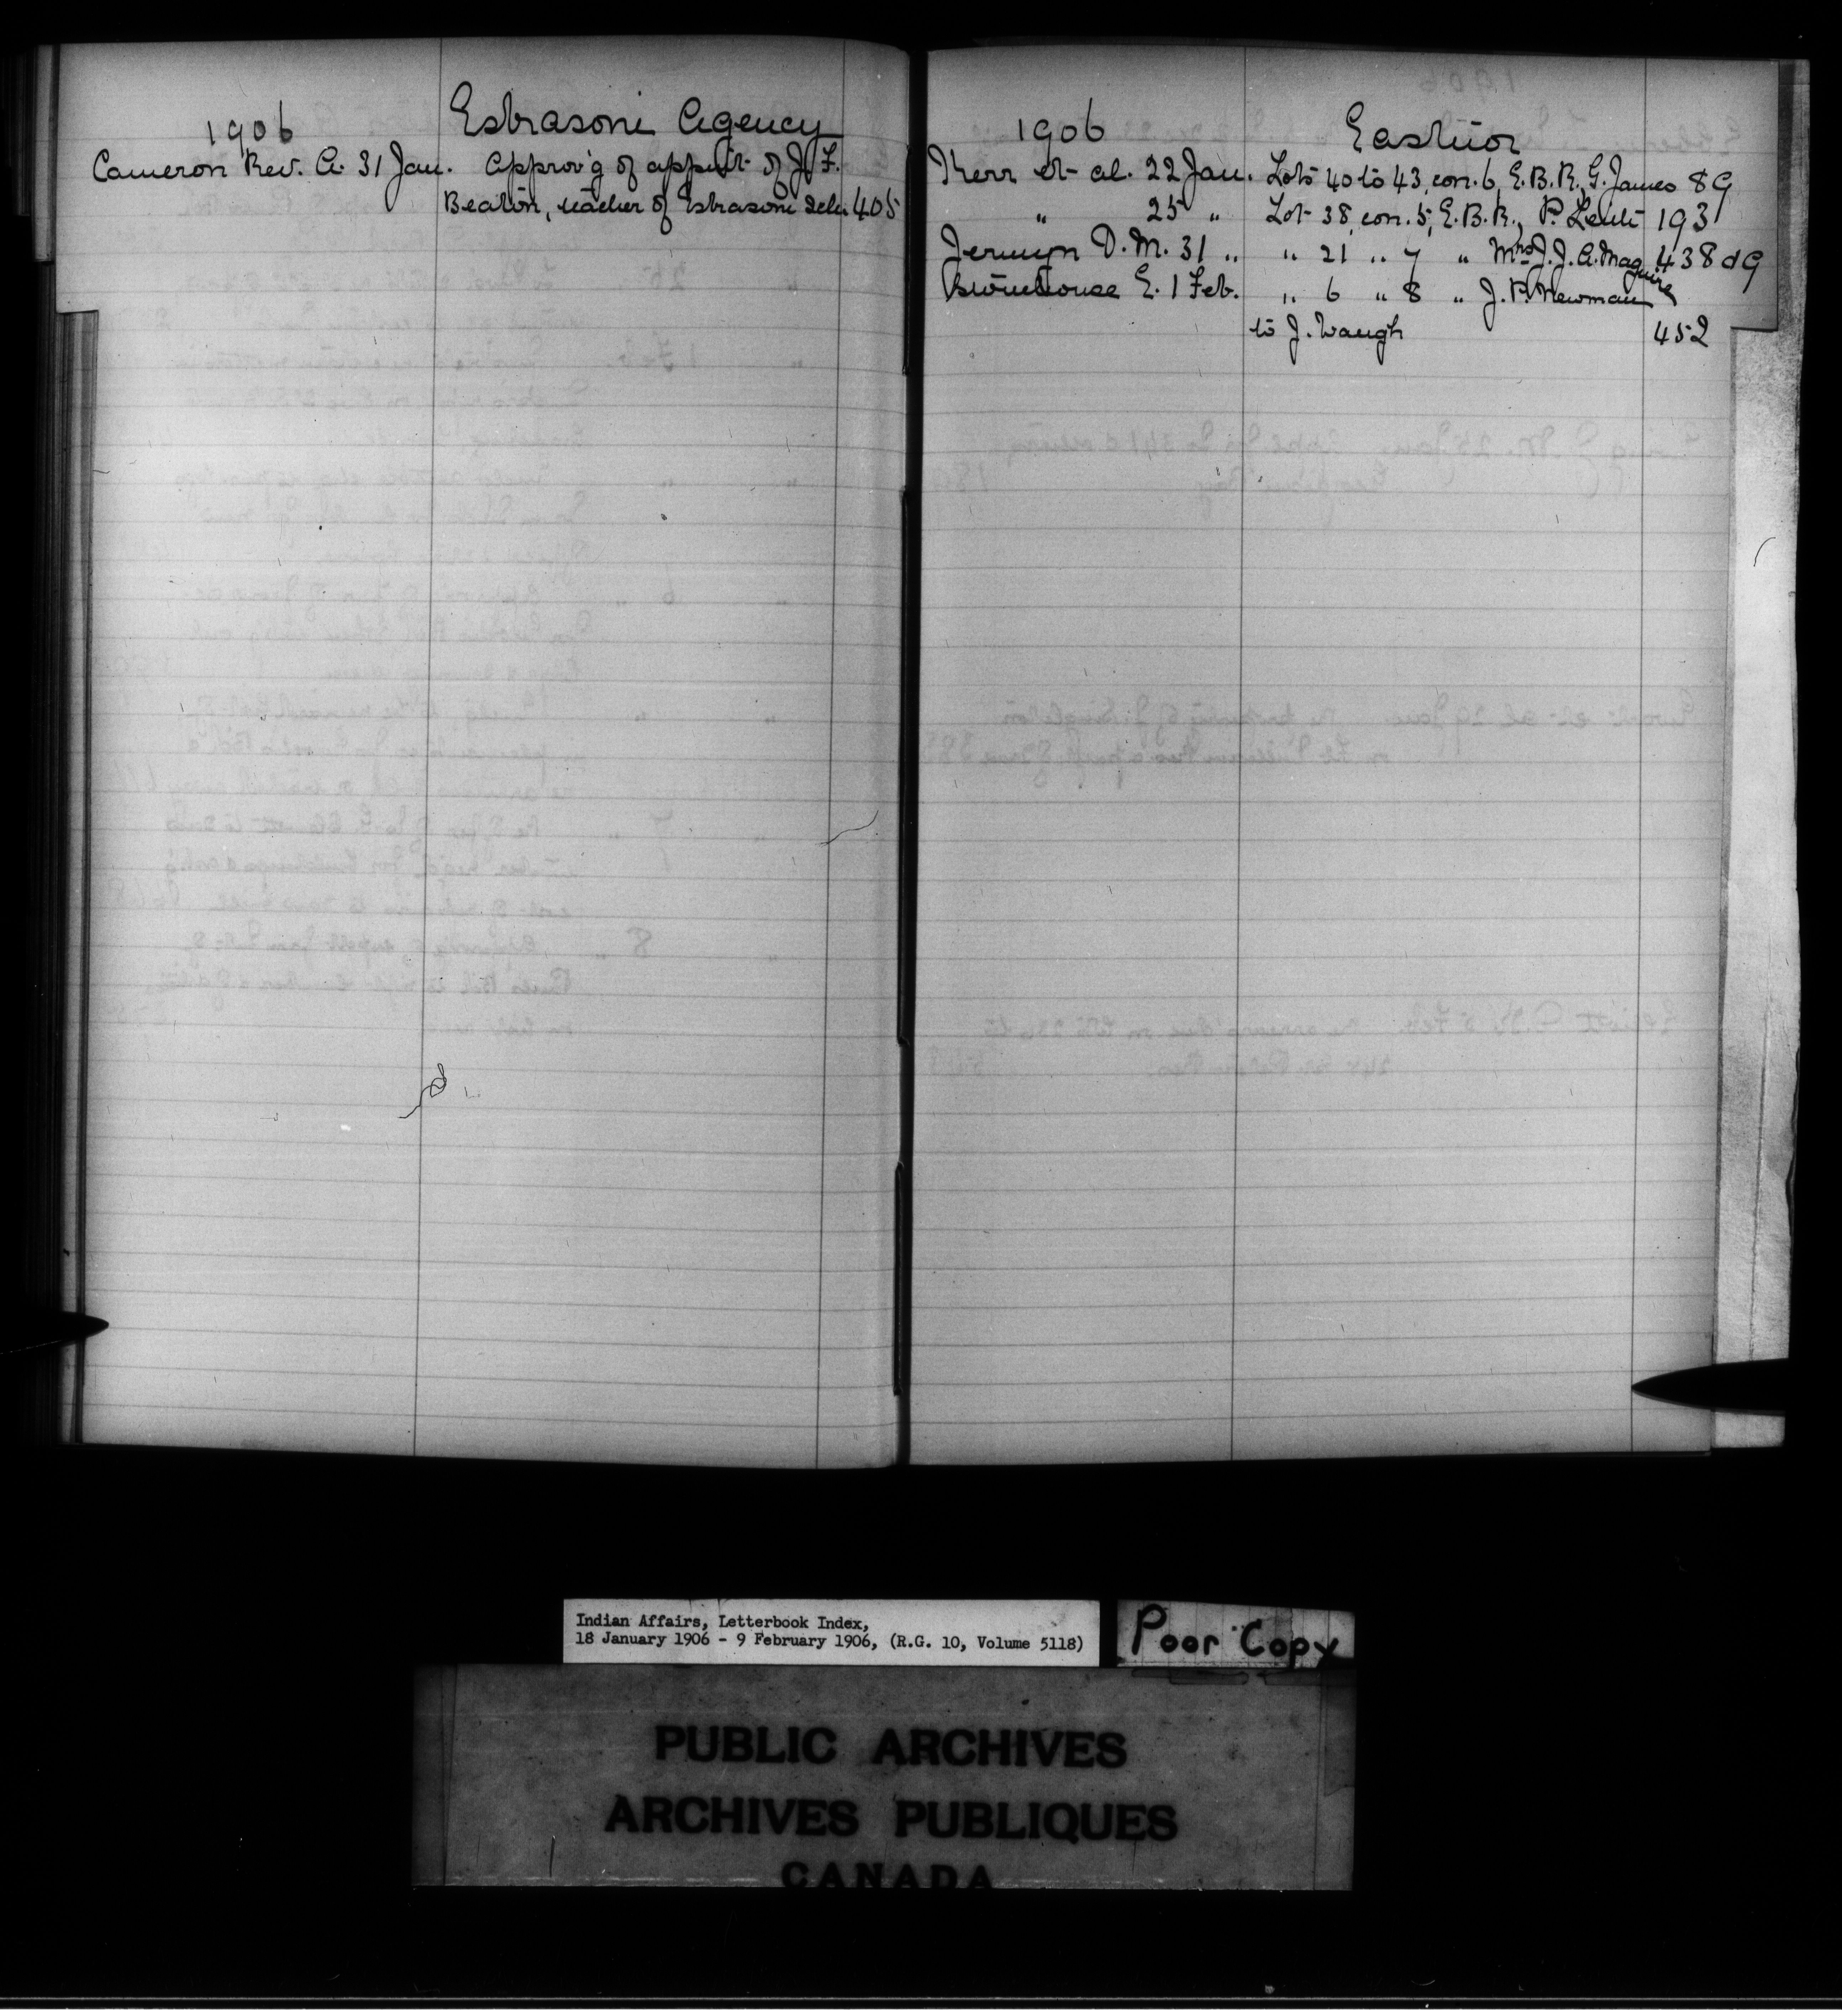 1906 Esbrasoni Agency
Cameron Rev. A. 31 Jan. Approv'g of appmt of J. F.
Beaton, teacher of Esbrasoni Sch. 405
1906 Eastnor
Kerr et al. 22 Jan. Lots 40 to 43, con. 6, E.B.R., G. James 89
" 25 " Lot 38, con. 5, E.B.R., P. 193
Jermyn D. M. 31 " " 21 " 7 " Mrs J. J. A. Maguire 438 d9
Stonehouse E. 1 Feb. " 6 " 8 " J. P. Newman
to J. Waugh 452
Indian Affairs, Letterbook Index,
18 January 1906 - 9 February 1906, (R.G. 10, Volume 5118)
Poor Copy
PUBLIC ARCHIVES
ARCHIVES PUBLIQUES
CANADA